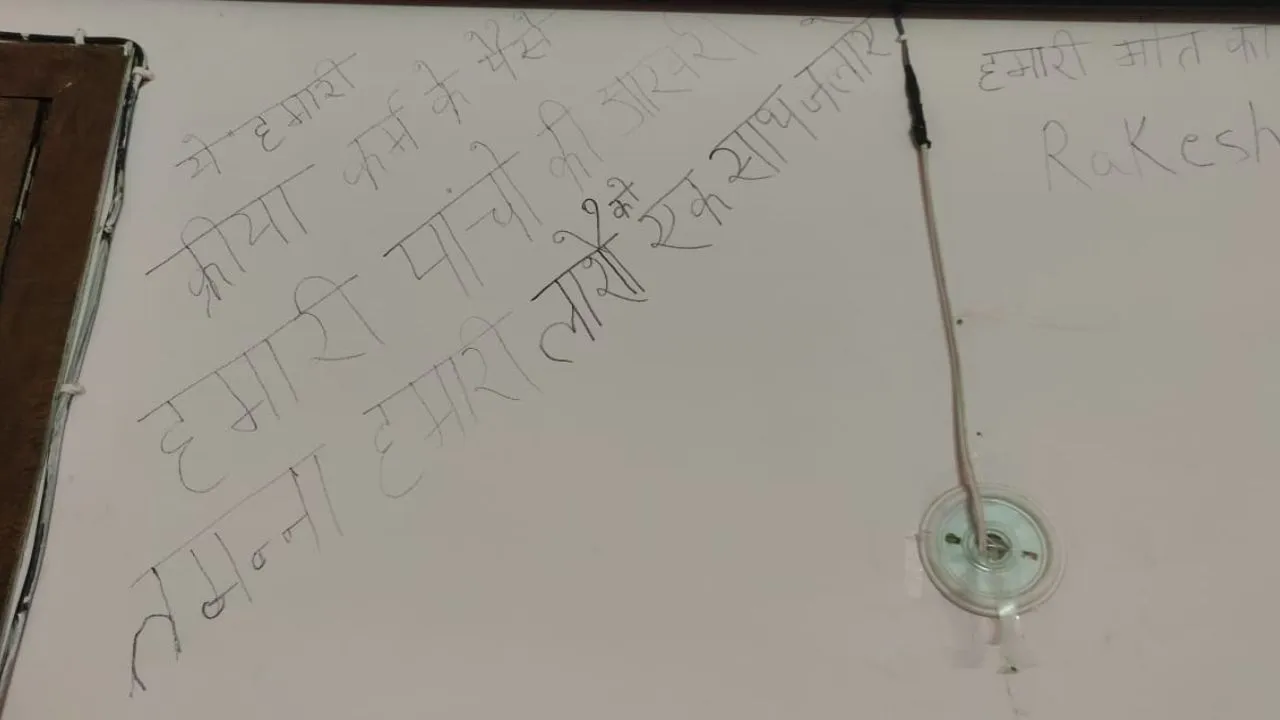 ये हमारी
क्रीया कर्म के पैसे
हमारी पांचो की आखरी
तमन्ना हमारी लाशों को एक साथ जलाऐ
हमारी मौत का
Rakesh